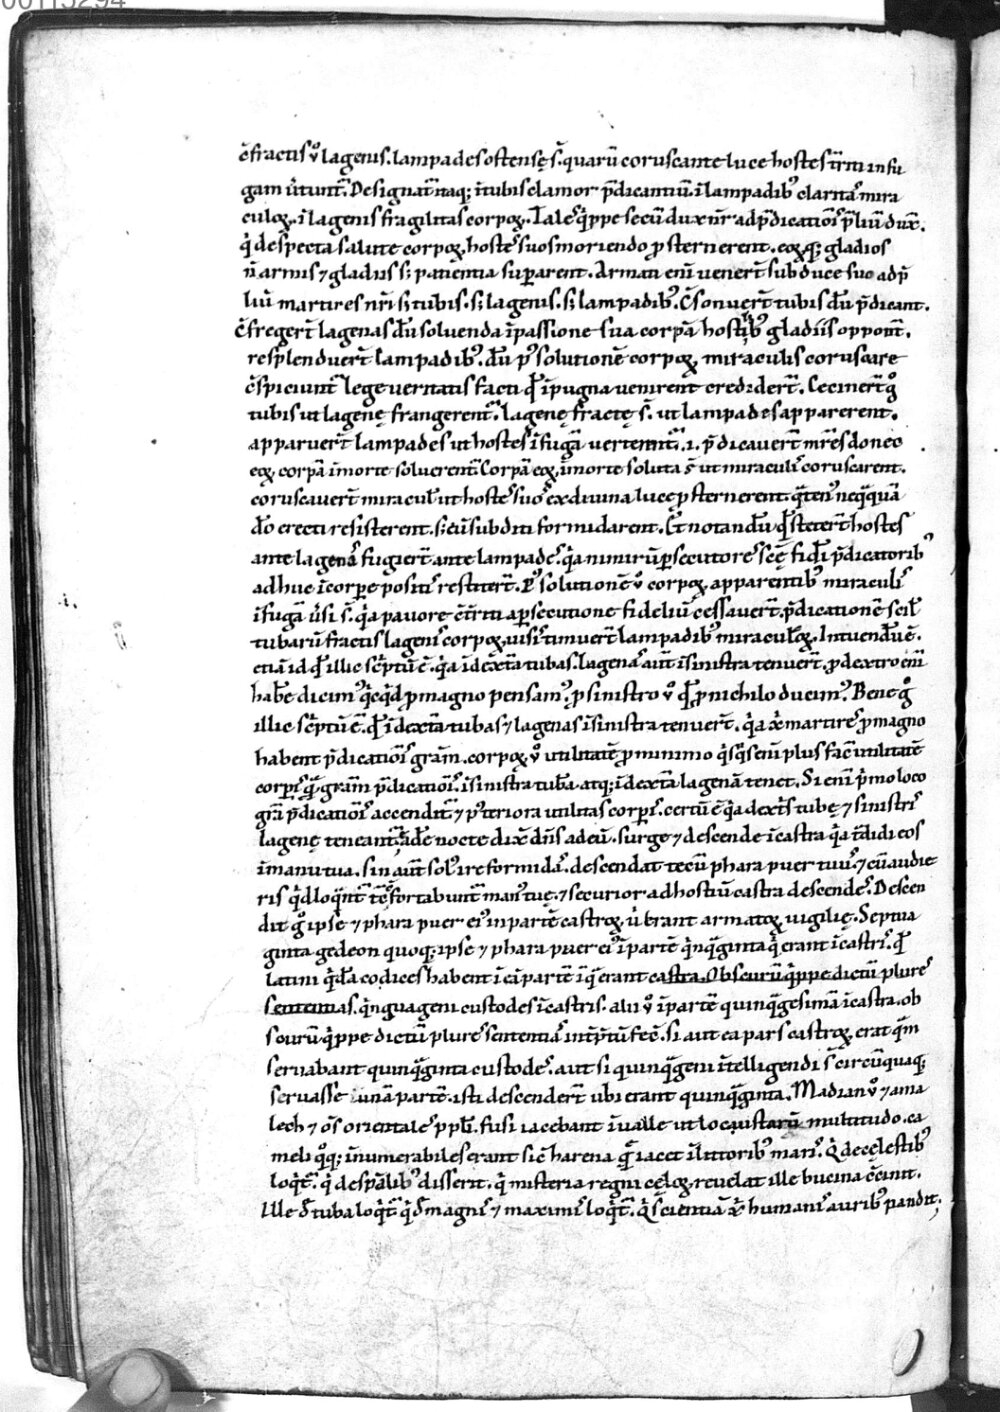 00113294
c̄fractis v̊ lagenis. lampades ostensę s̄. quarū coruscante luce hostes t̄rriti in fu
gam v̄tunt᷑. Designat᷑ itaq; ī tubis clamor p̄dicantiū. ī lampadib᷒ claritas mira
culoꝝ. ī lagenis fragilitas corpoꝝ. Tales q̇ppe secū dux nr̄ ad p̄dicatiōis p̄liū dux̄.
q̇ despecta salute corpoꝝ. hostes suos moriendo ꝓsternerent. eoꝝq; gladios
n̄ armis ⁊ gladiis s; patientia suꝑarent. Armati eni᷑ venert̄ sub duce suo ad p̄
liū martires nr̄i s; tubis. s; lagenis. s; lampadib᷒. C̄sonuert̄ tubis dū p̄dicant.
c̄fregert̄ lagenas dū solvenda ī passione sua corpa᷑ hostib᷒ gladiis oppont̄.
resplenduert̄ lampadib᷒. dū p᷒ solutionē corpoꝝ miraculis coruscare
c̄spiciunt᷑ lege veritatis facti qd̄ ī pugna venirent crediderт̄. Cecinert̄ g̊
tubis ut lagenę frangerent᷑. lagenę fractę s̄. ut lampades apparerent.
apparuert̄ lampades ut hostes ī fugā verterent᷑. .i. p̄dicavert̄ mr̄es donec
eoꝝ corpa᷑ ī morte solverent᷑. Corpa᷑ eoꝝ ī morte soluta s̄ ut miraculis coruscarent.
coruscavert̄ miracul᷑ ut hostes suos ex divina luce ꝓsternerent. q̄ten᷒ neq̄q̄uā
do᷑ erecti resisterent. s; eū subditi formidarent. Et̄ notandū qd̄ stetert̄ hostes
ante lagenas fugiert̄ ante lampades. q̇a nimirū ꝑsecutores scē fidi᷑ p̄dicatorib᷒
adhuc ī corpe positis restitert̄. P᷒ solutionē v̊ corpoꝝ. apparentib᷒ miraculis
ī fugā v̄si s̄. q̇a pavore c̄t̄rriti a ꝑsecutione fideliū cessavert̄. p̄dicationē scil᷑
tubarū fractis lagenis corpoꝝ. visis timuert̄ lampadib᷒ miraculoꝝ. Intuendū ē.
etiā id qd̄ illic sc̄ptū ē. q̇a ī dextа̄ tubas. lagenas aut̄ ī sinistra tenuert̄. ꝓ dextro eni᷑
habe᷑ dicim᷒ q̇cq̇d ꝓ magno pensam᷒. ꝓ sinistro v̊ qd̄ ꝓ nichilo ducim᷒. Bene g̊
illic sc̄ptū ē. qd̄ ī dextа̄ tubas ⁊ lagenas ī sinistra tenuert̄. q̇a xp̄i martires ꝓ magno
habent p̄dicatiōis grām. corpoꝝ v̊ utilitatē ꝓ minimo q̇sq̇s eni᷑ plus facit̄ utilitatē
corpis᷑ q̄ grām p̄dicatiōis. ī sinistra tubā atq; ī dextа̄ lagenā tenet. Si eni᷑ p̊mo loco
grā p̄dicatiōis accendit᷑ ⁊ p᷒teriora utilitas corpis. certū ē q̇a dextr̄is tubę ⁊ sinistris
lagenę teneant᷑. Eadē nocte dix̄ dn̄s ad eū. surge ⁊ descende ī castra q̇a t̄didi eos
ī manu tua. sin aut̄ solus ire formidas. descendat tecū phara puer tuus. ⁊ cū audie
ris q̇d loq̄nt᷑ tc̄ c̄fortabunt᷑ man᷒ tuę. ⁊ securior ad hostiū castra descendes. Descen
dit g̊ ipse ⁊ phara puer ei᷒ in partē castroꝝ. u᷑ erant armatoꝝ vigilię. Septua
ginta gedeon quoq; ipse ⁊ phara puer ei᷒ ī partē q̇nq̄ginta q̇ erant ī castris. qd̄
latini q̇dā codices habent ī eā partē ī q̄ erant castra. Obscurū q̇ppe dictū plures
sententias. q̇nquageni custodes ī castris. alii v̊ ī partē quinq̄gesimā ī castra. ob
scurū q̇ppe dictū plures sententias intp̄tū fecit̄. Si aut ea pars castroꝝ erat q̄m
servabant quinq̄ginta custodes. aut si quinq̄geni ītelligendi s̄ circūquaq;
servasse ī unā partē. isti descendert̄ ubi erant quinq̄ginta. Madian v̊ ⁊ ama
lech ⁊ om̄s orientales ppl̄i. fusi iacebant ī valle ut locustarū multitudo. ca
meli q̊q; īnumerabiles erant sic̄ harena q̄ iacet ī littorib᷒ maris. Q̇ de cęlestib᷒
loq̇t᷑. q̇ de spālib᷒ disserit. q̇ misteria regni cęloꝝ revelat ille bucina c̄cinit.
Ille ō tuba loq̇t᷑ q̇ d̄ magnis ⁊ maximis loq̇t᷑. q̇ scientiā xp̄i humanis aurib᷒ pandit;